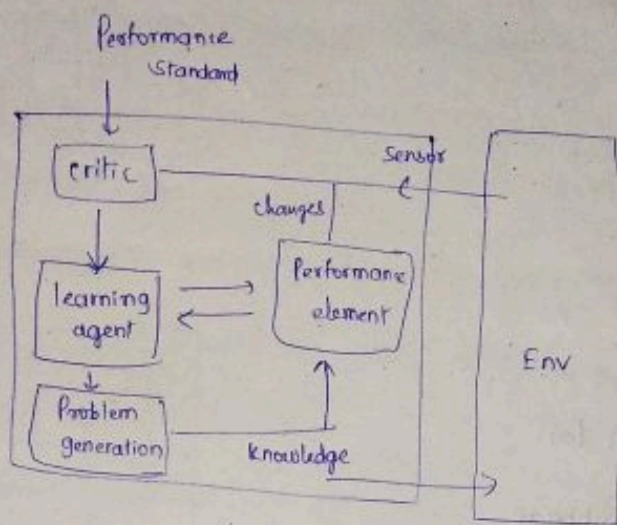 Performance
Standard
critic
Sensor
changes
learning
agent
Performanc
element
Env
Problem
generation
knowledge